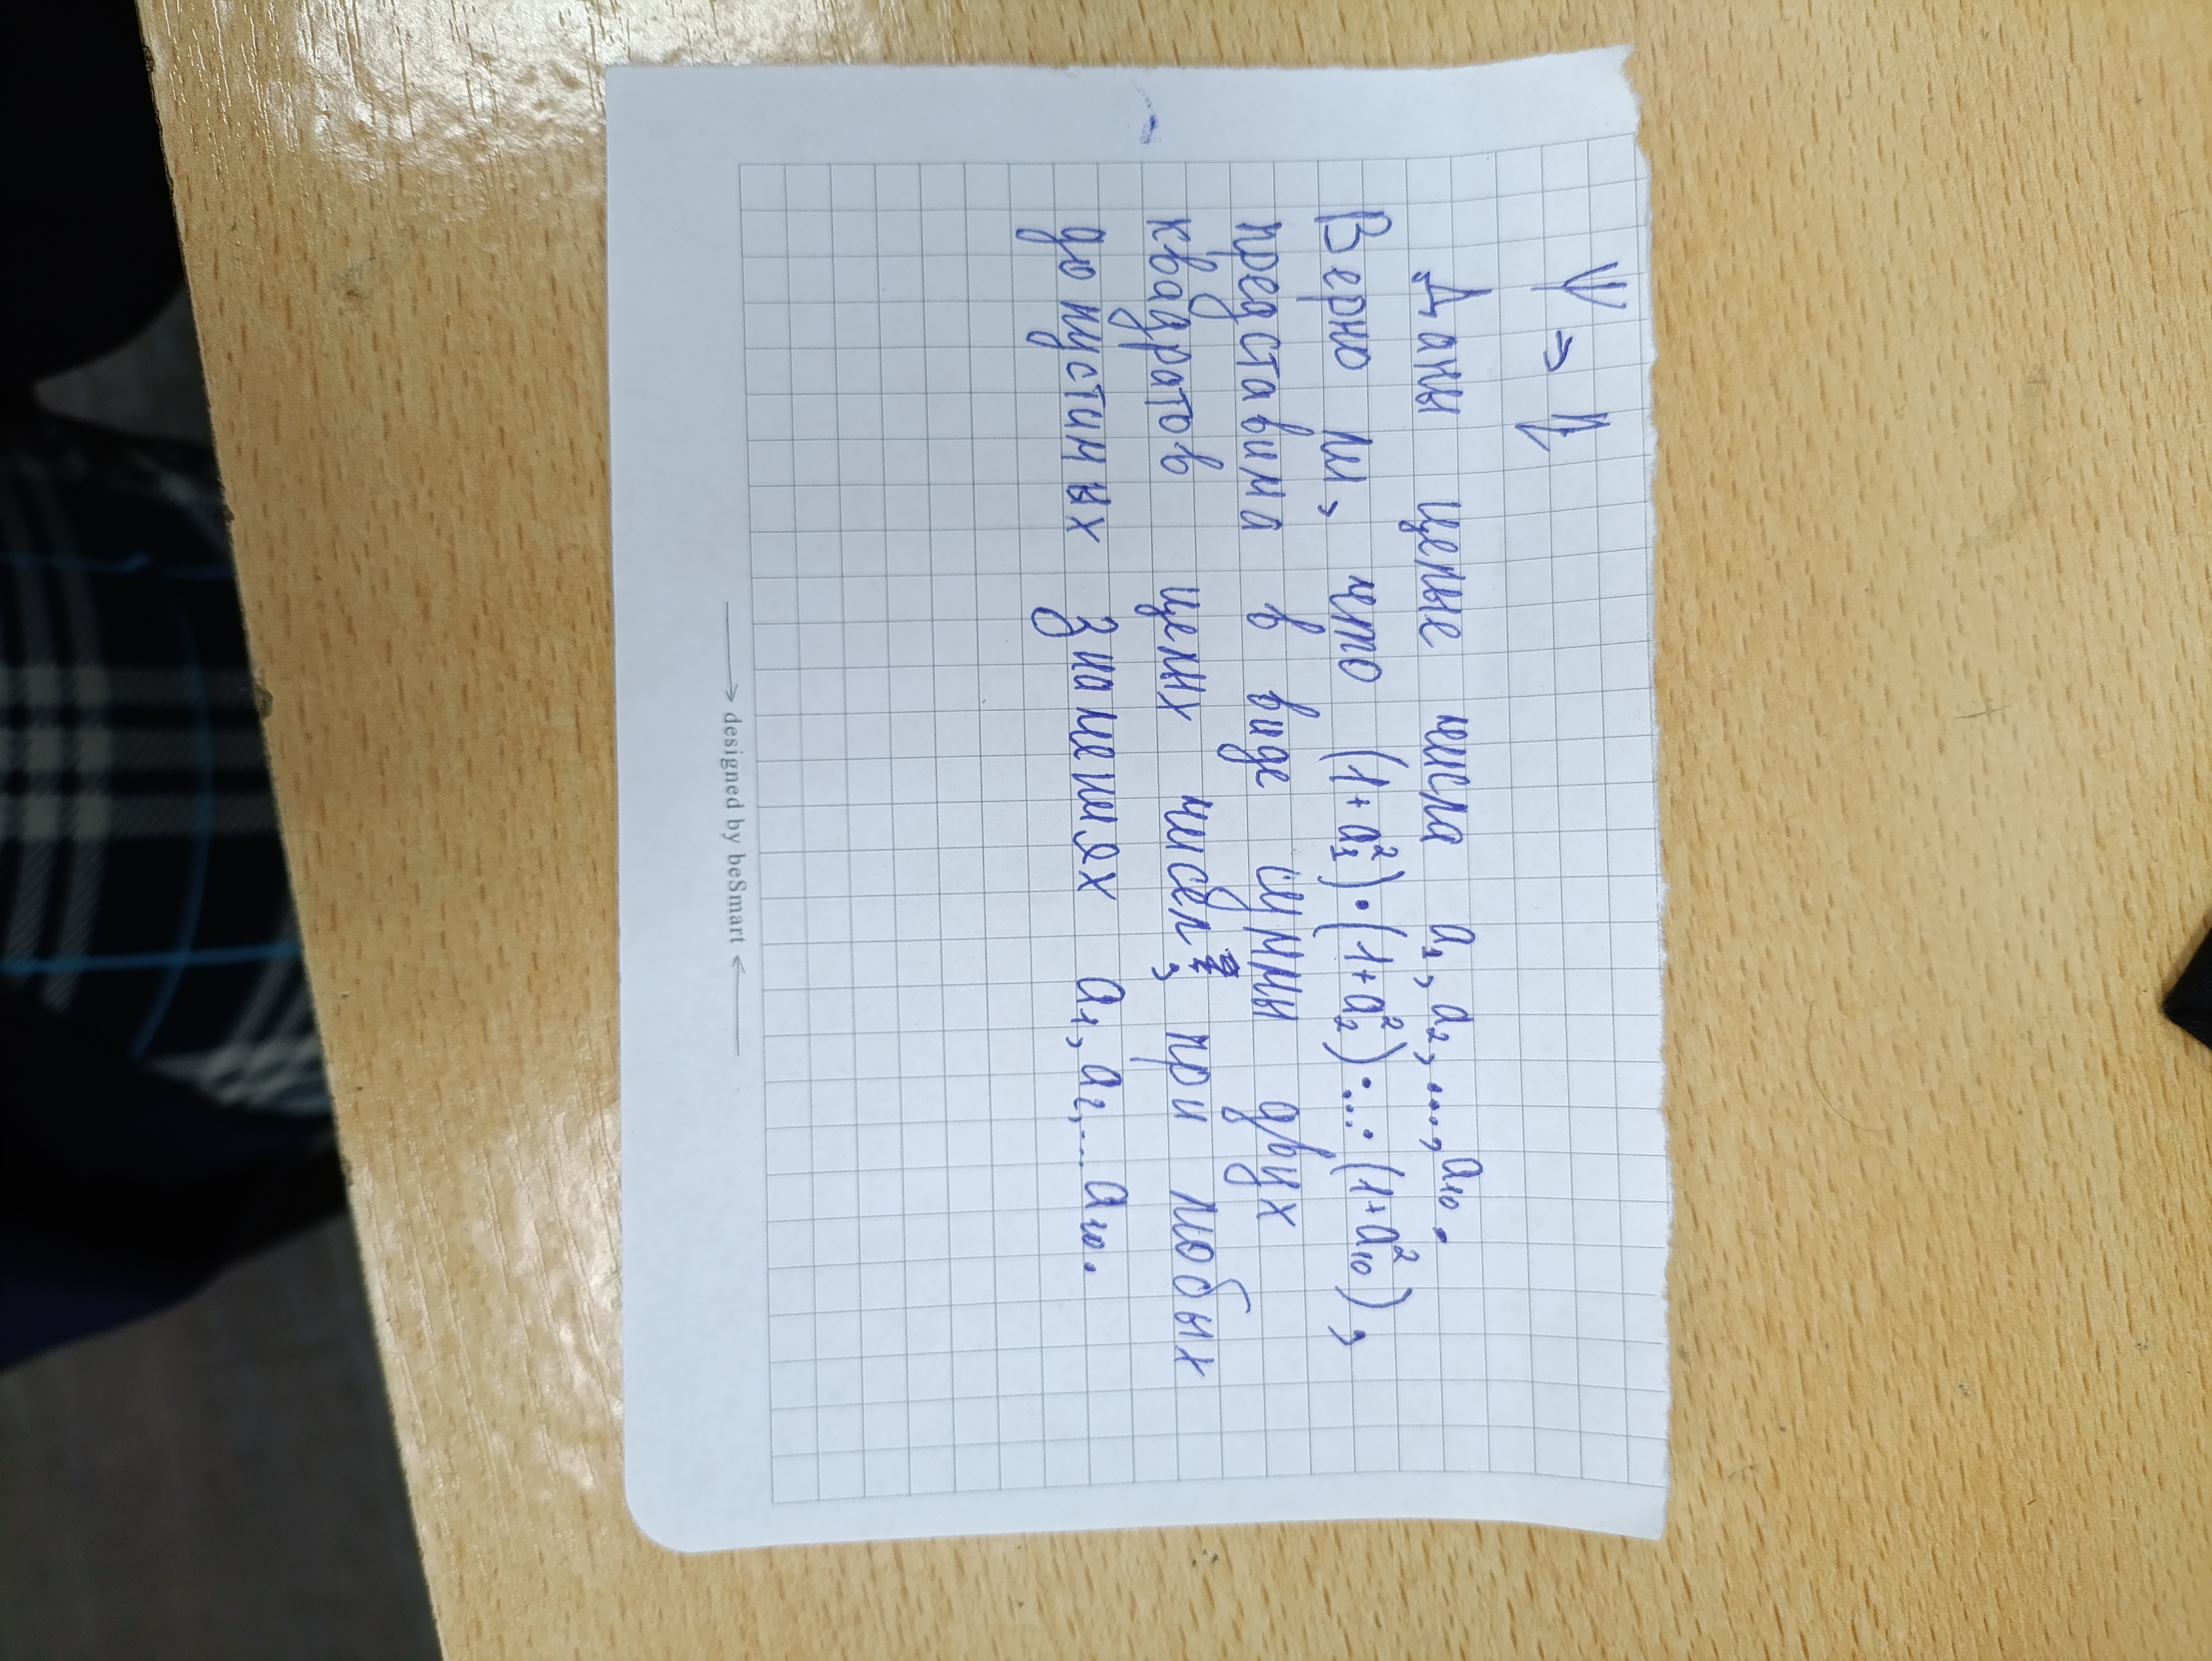 Даны целые числа a₁, a₂, ..., a₁₀.
Верно ли, что (1+a₁²)·(1+a₂²)·...·(1+a₁₀²),
представима в виде суммы двух
квадратов целых чисел, при любых
допустимых значениях a₁, a₂, ... a₁₀.
→ designed by beSmart ←